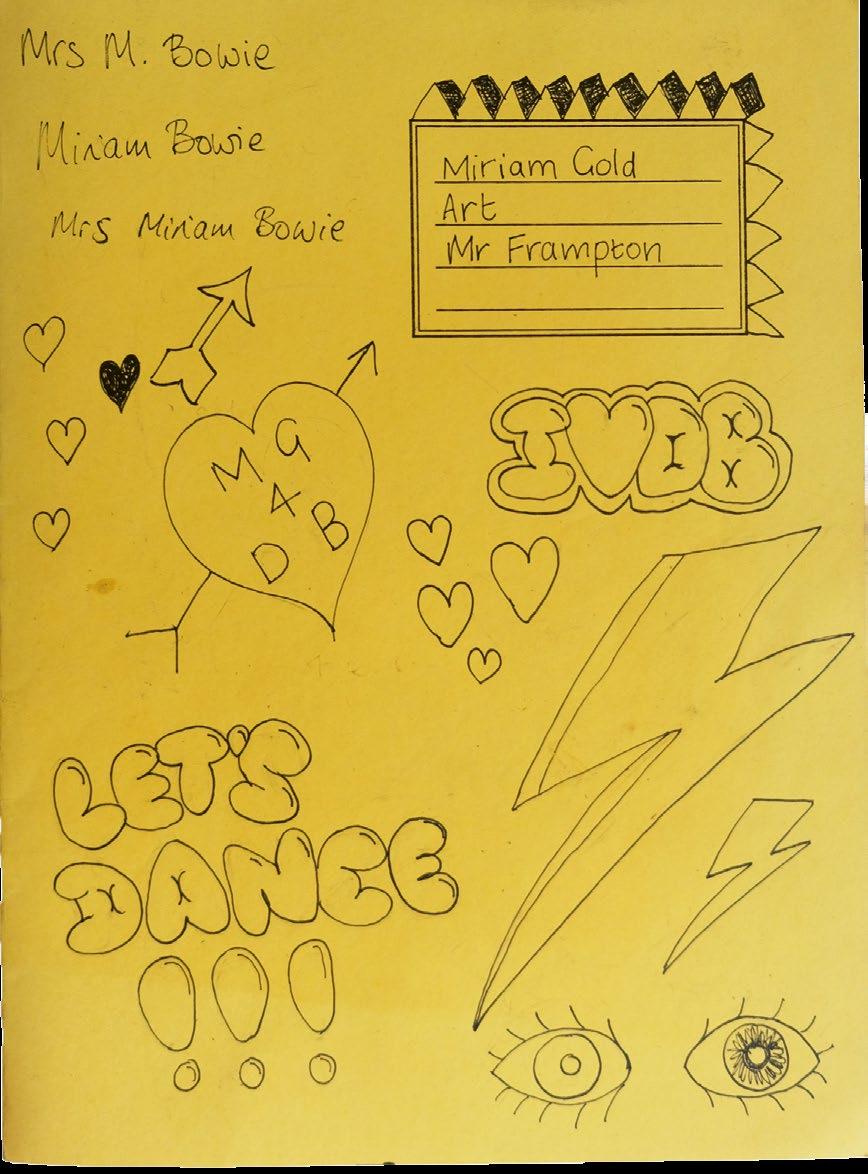 Mrs M. Bowie
Miriam Bowie
Mrs Miriam Bowie
Miriam Gold
Art
Mr Frampton
M G
+
D B
I ♥ DB
LET'S
DANCE
!!!